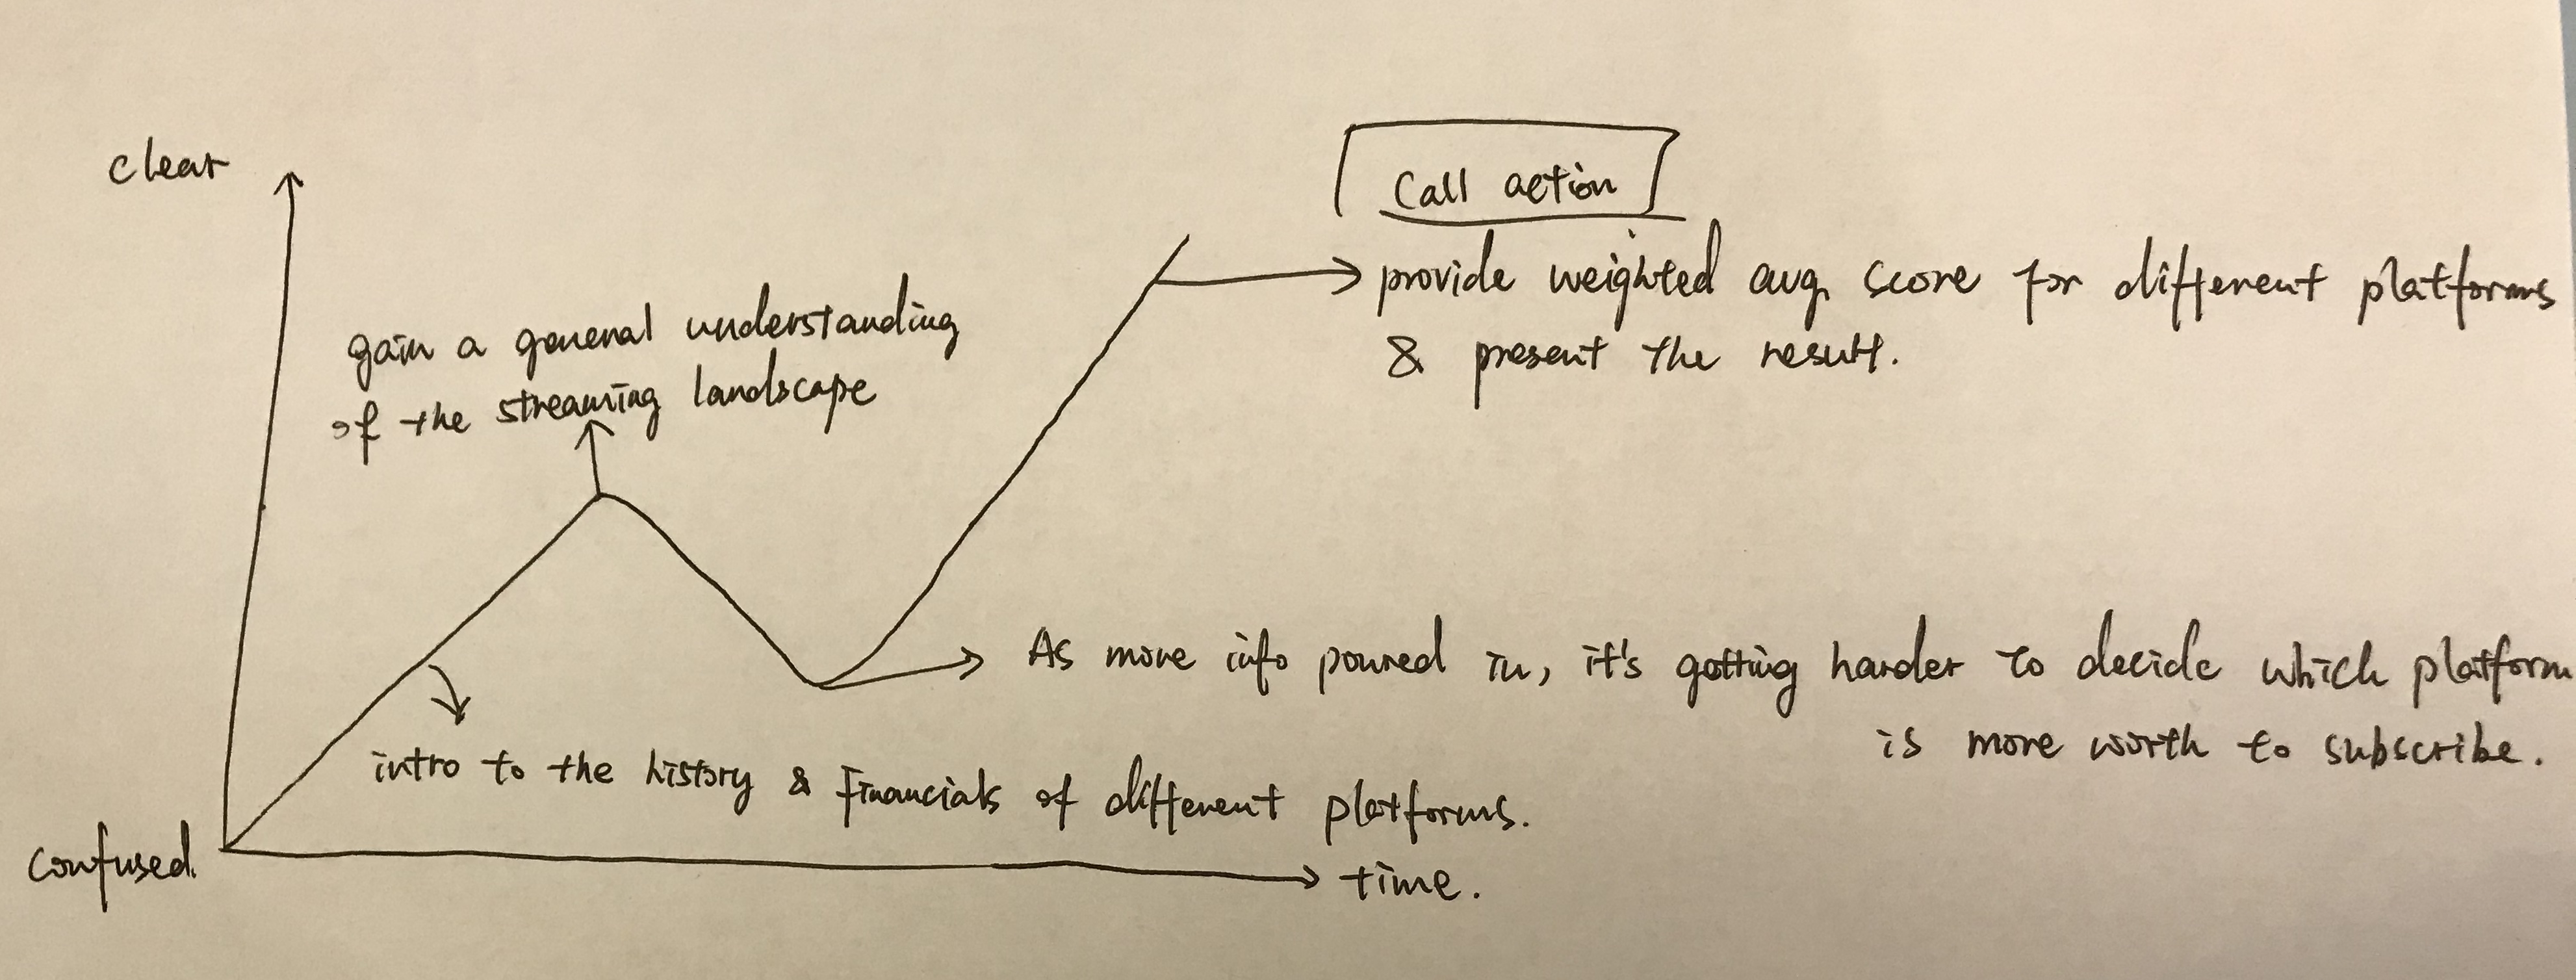 clear
Call action
provide weighted avg. score for different platforms
& present the result.
gain a general understanding
of the streaming landscape
As more info poured in, it's getting harder to decide which platform
is more worth to subscribe.
intro to the history & Financials of different platforms.
Confused.
time.